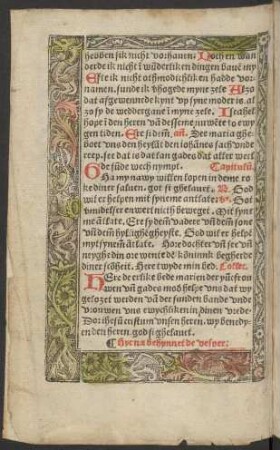 hebben sik nicht vorhauen. Noch en wan
derde ik nicht ī wūderliken dingen bauē my
Efte ik nicht othmodichliken hadde vor-
namen. sunde ik vhogede myne zele Alzo
dat afgewennede kynt vp syne moder is. al
zo sy de weddergaue ī myne zele. Israhel
hope ī den heren vā desseme nu wēte to ewy
gen tiden. Ere si dem. añ. Dee maria ghe
boert vns den
reep. see dat is dat lam gades dat aller werlt
de sūde wech nympt. Capittulū.
Ha my na wy willen lopen in deme ro
ke diner saluen. got si ghelauet. God
wil er helpen mit syneme antlate. God
is in erem myddel se en wert nicht beweget. Mit syne
me ātlate. Ere sy dem vadere vn̄ dem sone
vn̄ dem hylligheghe yste. God wil er helpē
myt synem ātlate. Hore dochter vn̄ see vn̄
neyght din ore wente de kōninnk begherde
diner schōheit. Here twyde min bed. Collec.
HEre de erlike bede marien der yūcfrou
wen vn̄ gades mod helpe vns dat wy
gelozet werden vā der sunden bande vnde
vrouwen vns ewychliken in dinen vrede-
Dor ihesū cristum vnsen heren. wy benedy-
en den heren. god si ghelauet.
Hyr na beghynnet de vesper: